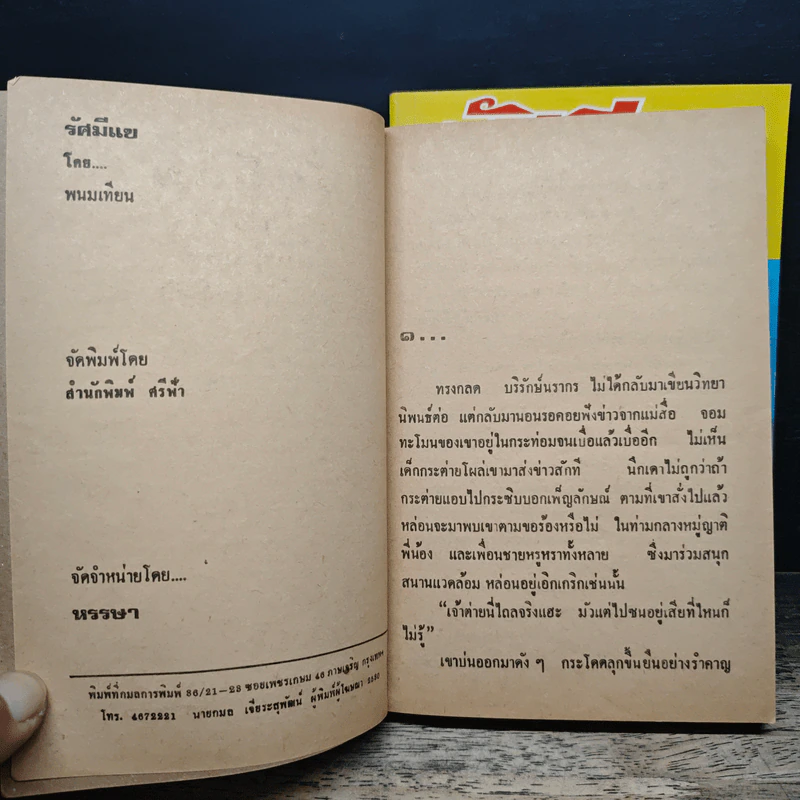 รัศมีแข
โดย....
พนมเทียน
จัดพิมพ์โดย
สำนักพิมพ์ ศรีฟ้า
จัดจำหน่ายโดย....
หรรษา
พิมพ์ที่กมลการพิมพ์ 36/21-23 ซอยเพชรเกษม 46 ภาษีเจริญ กรุงเทพฯ
โทร. 4672221 นายกมล เจียระสุพัฒน์ ผู้พิมพ์ผู้โฆษณา
๑...
ทรงกลด บริรักษ์นรากร ไม่ได้กลับมาเขียนวิทยา
นิพนธ์ต่อ แต่กลับมานอนรอคอยฟังข่าวจากแม่สื่อ จอม
ทะโมนของเขาอยู่ในกระท่อมจนเบื่อแล้วเบื่ออีก ไม่เห็น
เด็กกระต่ายโผล่เขามาส่งข่าวสักที นึกเดาไม่ถูกว่าถ้า
กระต่ายแอบไปกระซิบบอกเพ็ญลักษณ์ ตามที่เขาสั่งไปแล้ว
หล่อนจะมาพบเขาตามขอร้องหรือไม่ ในท่ามกลางหมู่ญาติ
พี่น้อง และเพื่อนชายหรูหราทั้งหลาย ซึ่งมาร่วมสนุก
สนานแวดล้อม หล่อนอยู่เอิกเกริกเช่นนั้น
“เจ้าต่ายนี่ไถลจริงแฮะ มัวแต่ไปซนอยู่เสียที่ไหนก็
ไม่รู้”
เขาบ่นออกมาดัง ๆ กระโดดลุกขึ้นยืนอย่างรำคาญ